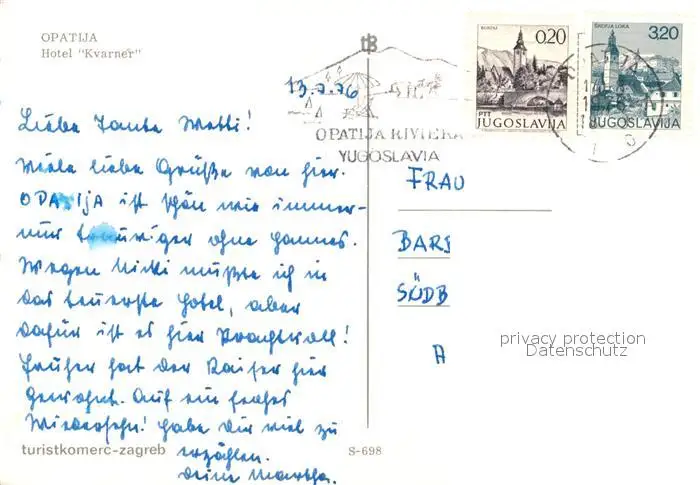 OPATIJA
Hotel "Kvarner"
BOHINJ
0,20
PTT
JUGOSLAVIJA
ŠKOFJA LOKA
3,20
JUGOSLAVIJA
OPATIJA RIVIERA
YUGOSLAVIA
13.7.76
Liebe Tante Metti!
Viele liebe Grüße von hier.
OPATIJA ist schön wie immer-
nur trauriger ohne Hannes.
Wegen Nikki mußte ich in
das teuerste Hotel, aber
dafür ist es hier Prachtvoll!
Früher hat der Kaiser hier
gewohnt. Auf ein frohes
Wiedersehn! habe Dir viel zu
erzählen.
Deine Martha.
FRAU
BARS
SÜDB
A
privacy protection
Datenschutz
turistkomerc-zagreb
S-698